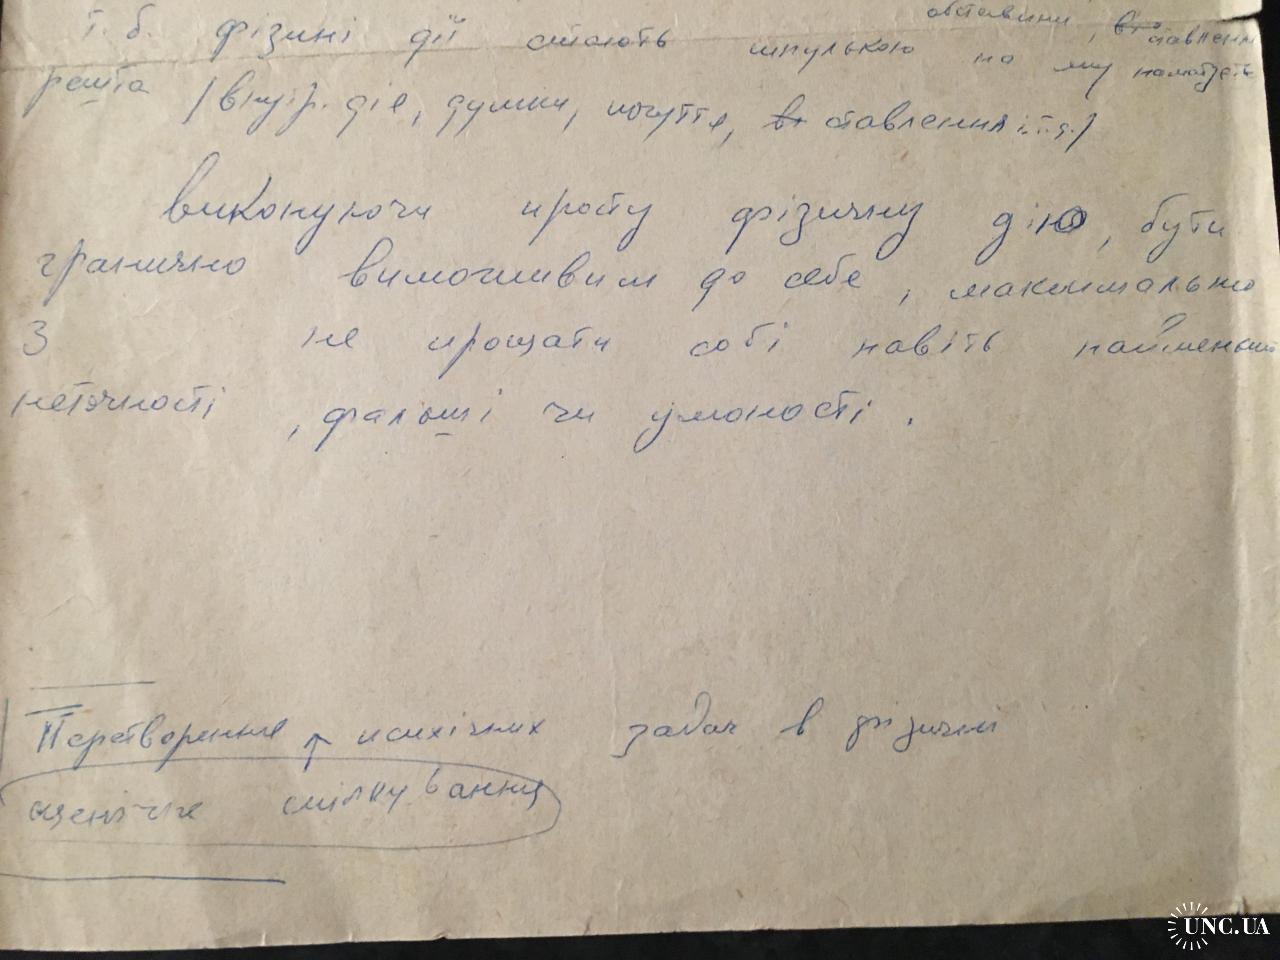 обставини, ставленн
Т. б. фізичні дії стають шпулькою на яку намотуєть
решта /внутр. дія, думки, почуття, ставлення і т. д./
виконуючи просту фізичну дію, бути
гранично вимогливим до себе, максимально
З не прощати собі навіть найменшої
неточності, фальші чи умовності.
Перетворення психічних задач в фізичні
сценічне спілкування
UNC.UA